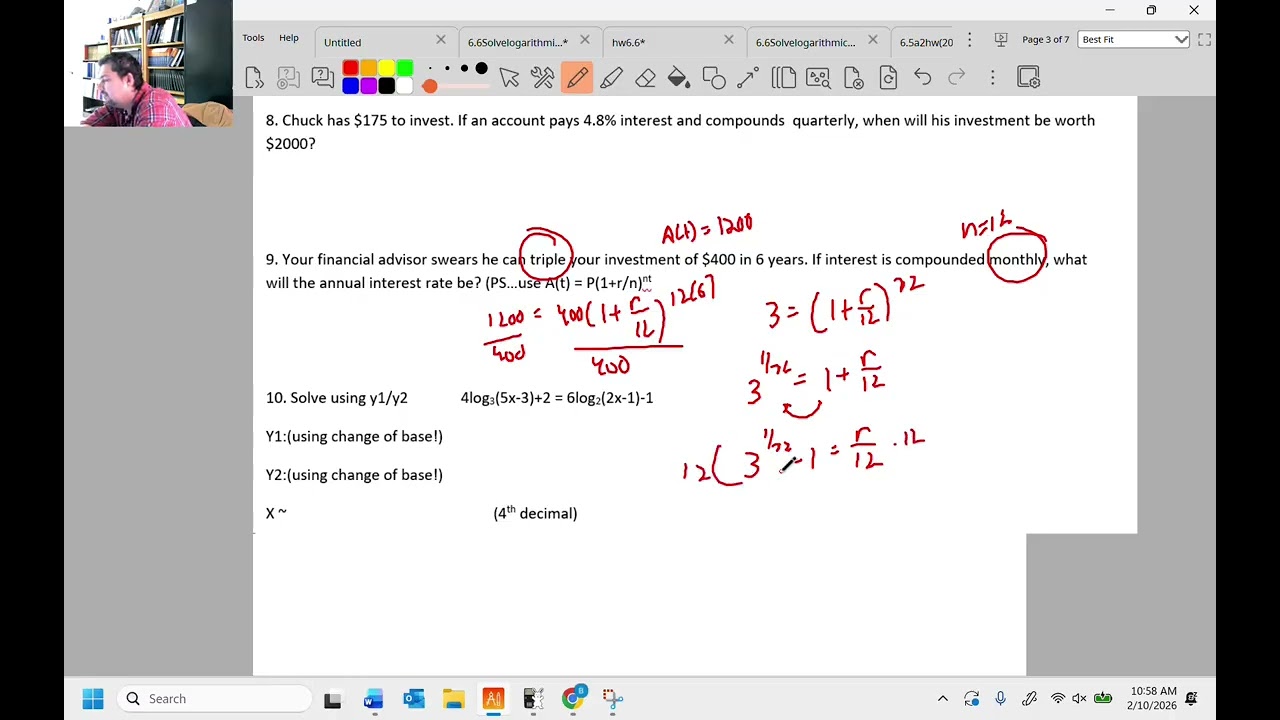 Tools Help Untitled 6.6Solvelogarithmi...* hw6.6* 6.6Solvelogarithmic... 6.5a2hw(20 Page 3 of 7 Best Fit
8. Chuck has $175 to invest. If an account pays 4.8% interest and compounds quarterly, when will his investment be worth
$2000?
A(t) = 1200
n=12
9. Your financial advisor swears he can triple your investment of $400 in 6 years. If interest is compounded monthly, what
will the annual interest rate be? (PS...use A(t) = P(1+r/n)^nt
1200/400 = 400(1+r/12)^12(6)/400
3 = (1+r/12)^72
3^1/72 = 1+r/12
12(3^1/72 - 1 = r/12 · 12
10. Solve using y1/y2 4log₃(5x-3)+2 = 6log₂(2x-1)-1
Y1:(using change of base!)
Y2:(using change of base!)
X ~ (4th decimal)
Search
10:58 AM
2/10/2026